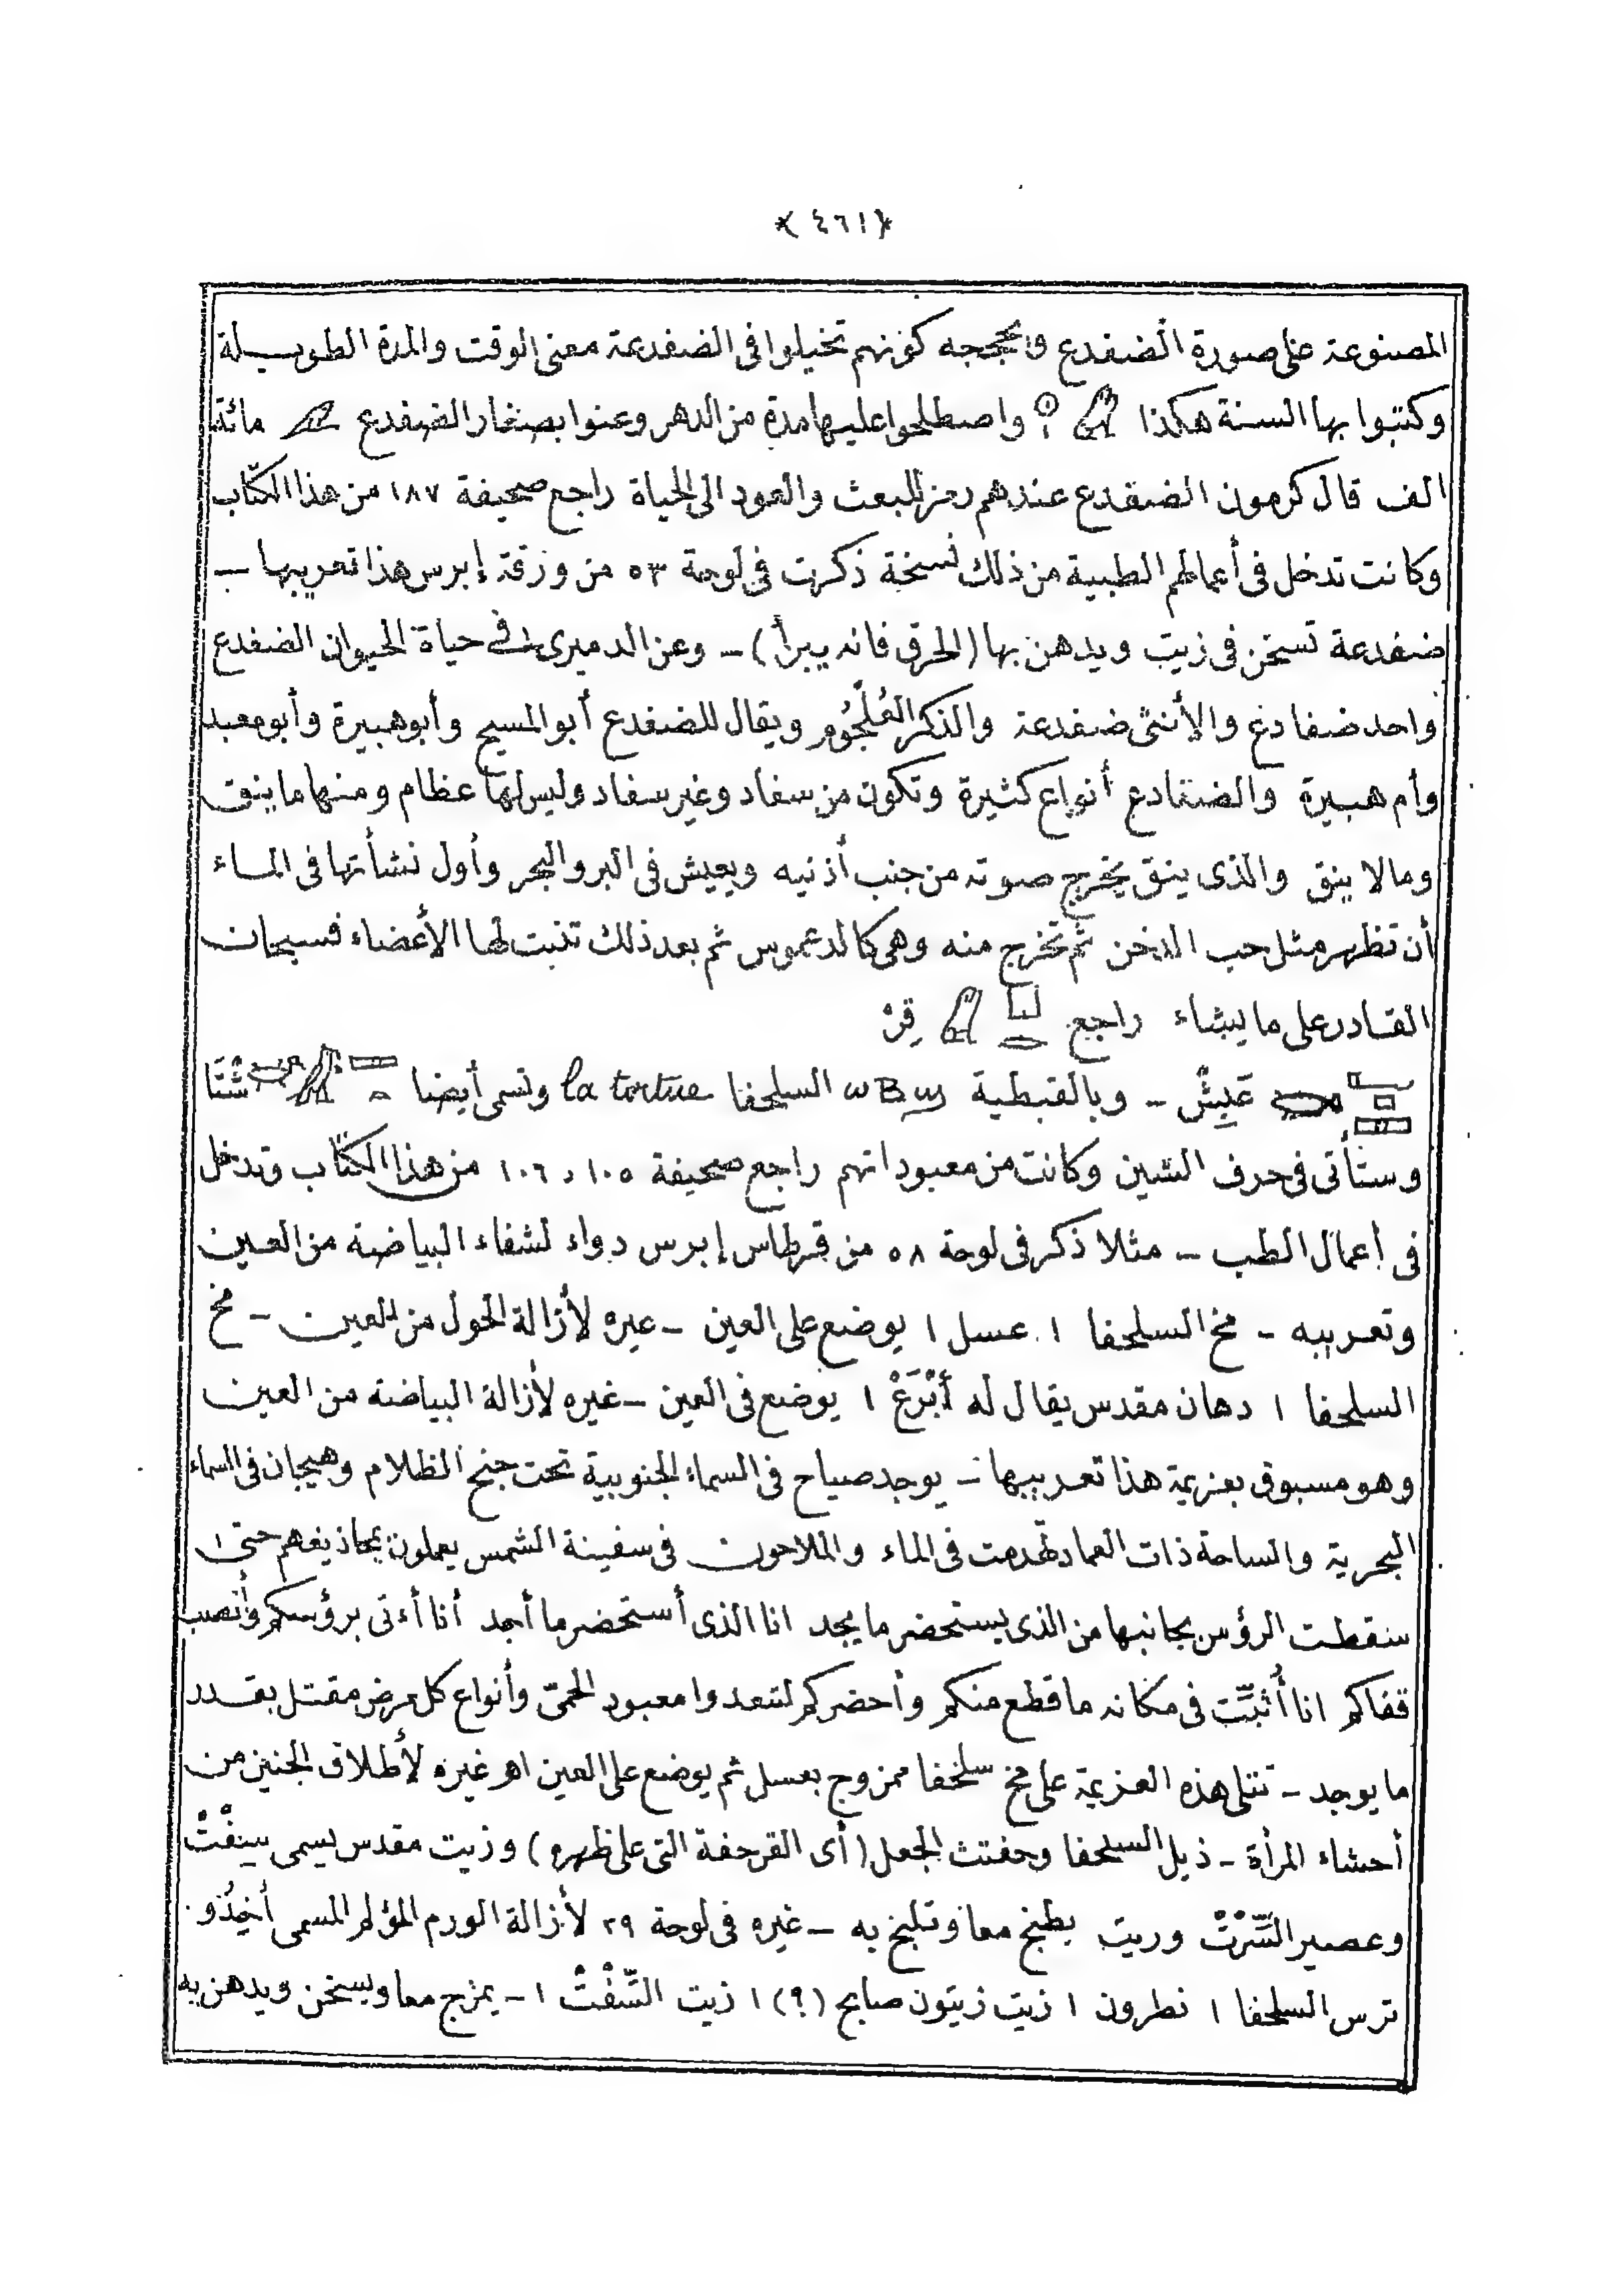 ﴿٤٦١﴾
المصنوعة على صورة الضفدع كونهم تخيلوا فى الضفدعة معنى الوقت والمدة الطويلة
وكتبوا بها السنة هكذا واصطلحوا عليها مدة من الدهر وعنوا بصغار الضفدع مائة
الف قال كرمون الضفدع عندهم رمز للبعث والعود الى الحياة راجع صحيفة ١٨٧ من هذا الكتاب
وكانت تدخل فى أعمالهم الطبية من ذلك نسخة ذكرت فى لوحة ٥٣ من ورقة إبرس هذا تعريبها –
ضفدعة تسخن فى زيت ويدهن بها (الحرق فانه يبرأ) – وعن الدميرى فى حياة الحيوان الضفدع
واحد ضفادع والأنثى ضفدعة والذكر العُلْجُوم ويقال للضفدع أبو المسيح وأبو هبيرة وأبو معبد
وأم هبيرة والضفادع أنواع كثيرة وتكون من سفاد وغير سفاد وليس لها عظام ومنها ما ينق
وما لا ينق والذى ينق يخرج صوته من جنب أذنيه ويعيش فى البر والبحر وأول نشأتها فى الماء
أن تظهر مثل حب الدخن ثم تخرج منه وهى كالدعموص ثم بعد ذلك تنبت لها الأعضاء فسبحان
القادر على ما يشاء راجع قِرْ
عَبِشْ – وبالقبطية ωΒϣ السلحفا la tortue وتسمى أيضا شْتَا
وستأتى فى حرف الشين وكانت من معبوداتهم راجع صحيفة ١٠٥ و ١٠٦ من هذا الكتاب وتدخل
فى أعمال الطب – مثلا ذكر فى لوحة ٥٨ من قرطاس إبرس دواء لشفاء البياضة من العين
وتعريبه – مخ السلحفا ١ عسل ١ يوضع على العين – غيره لأزالة الحول من العين – مخ
السلحفا ١ دهان مقدس يقال له أَبْرَعْ ١ يوضع فى العين – غيره لأزالة البياضة من العين
وهو مسبوق بعزيمة هذا تعريبها – يوجد صياح فى السماء الجنوبية تحت جنح الظلام وهيجان فى السماء
البحرية والساحة ذات العماد تهدمت فى الماء والملاحون فى سفينة الشمس يعملون بمجاذيفهم حتى ١
سقطت الرؤس بجانبها من الذى يستحضر ما يجد انا الذى أستحضر ما أجد أنا أءتى برؤسكم وأنصب
قفاكم انا أُثَبِّت فى مكانه ما قطع منكم وأحضركم لتبعدوا معبود الحمى وأنواع كل مرض مقتل بقدر
ما يوجد – تتلى هذه العزيمة على مخ سلحفا ممزوج بعسل ثم يوضع على العين اهـ غيره لأطلاق الجنين من
أحشاء المرأة – ذيل السلحفا وحفتث الجعل (أى القرحفة التى على ظهره) وزيت مقدس يسمى سِيفْتْ
وعصير السِّرْتْ وزيت يطبخ معا وتلبخ به – غيره فى لوحة ٢٩ لأزالة الورم المؤلم المسمى أَخِدُو
ترس السلحفا ١ نطرون ١ زيت زيتون صابح (؟) ١ زيت السِّفْتْ ١ – يمزج معا ويسخن ويدهن به